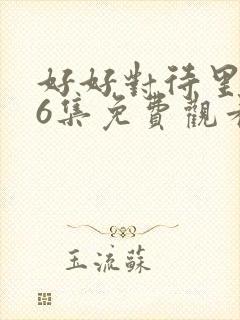 好好對待里
6集免費觀看
玉流蘇